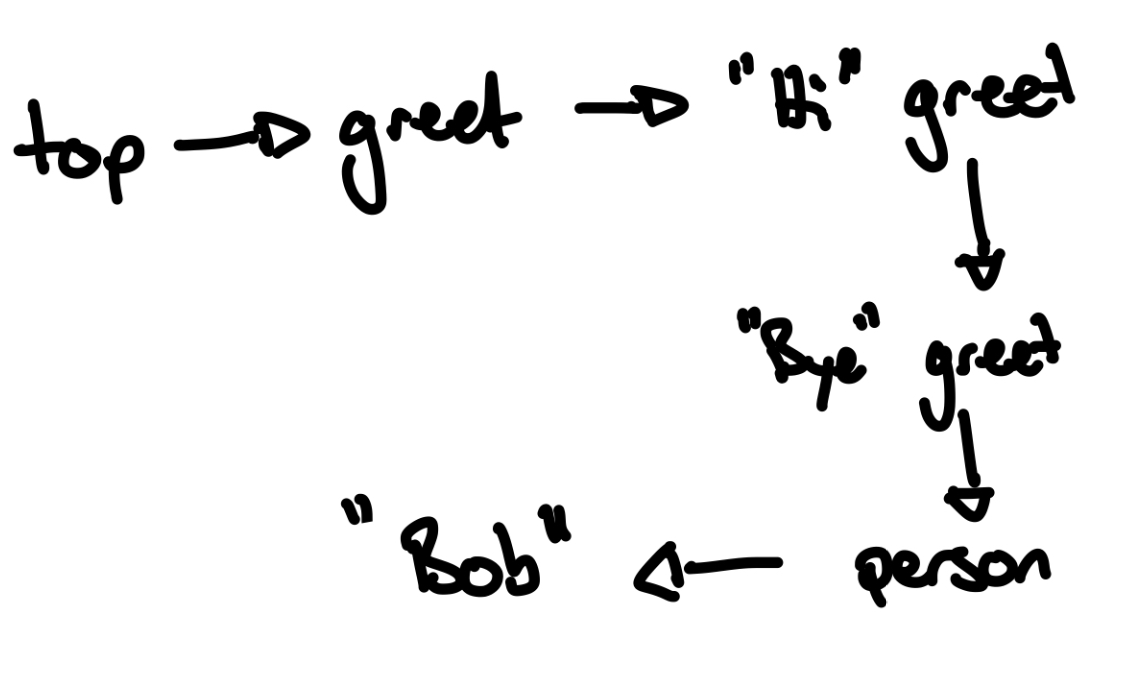 top greet "Hi" greet
"Bye" greet
"Bob" person